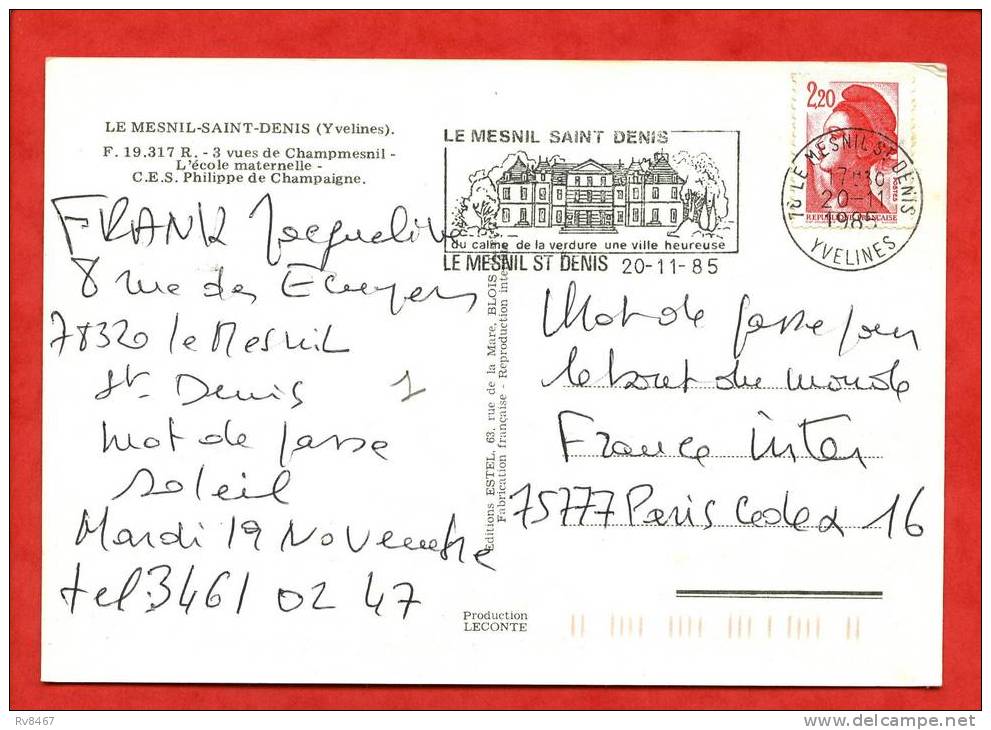 LE MESNIL-SAINT-DENIS (Yvelines).
F. 19.317 R. - 3 vues de Champmesnil -
L'école maternelle -
C.E.S. Philippe de Champaigne.
FRANK Jacqueline
8 rue des Ecuyers
78320 le Mesnil
St. Denis
1
mot de passe
Soleil
Mardi 19 Novembre
tel: 3461 02 47
LE MESNIL SAINT DENIS
du calme de la verdure une ville heureuse
LE MESNIL ST DENIS 20-11-85
2,20
POSTES
REPUBLIQUE FRANÇAISE
78 LE MESNIL ST DENIS
17H30
20-11
1985
YVELINES
Editions ESTEL, 63, rue de la Mare, BLOIS
Fabrication française - Reproduction
Mot de passe pour
le bout du monde
France Inter
75777 Paris Cedex 16
Production
LECONTE
Rv8467
www.delcampe.net